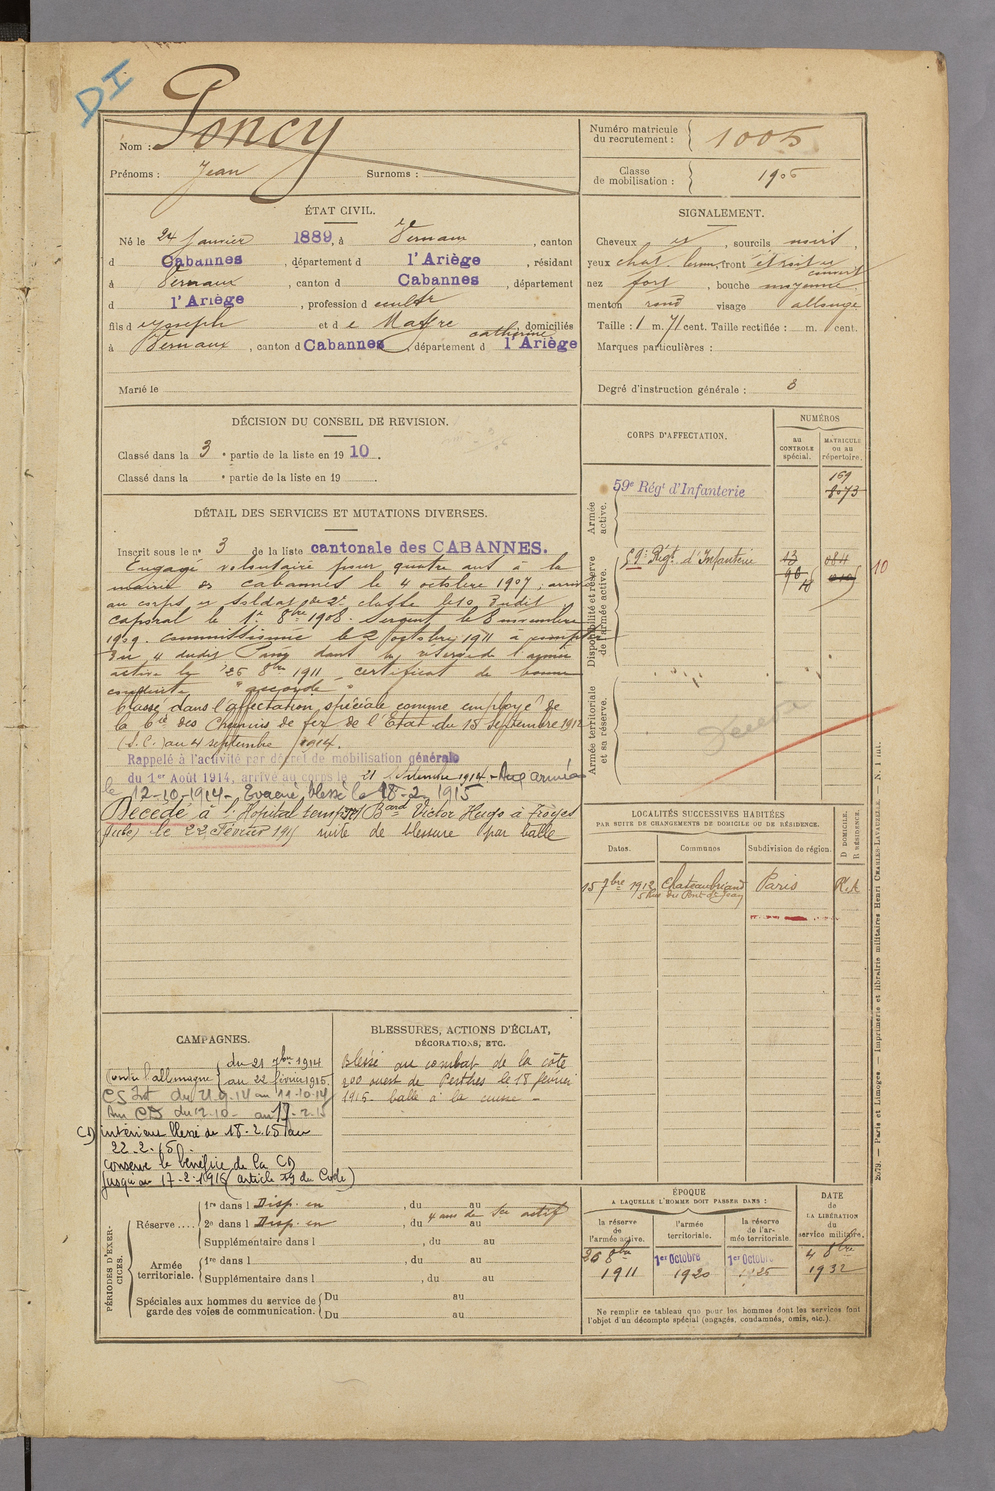 DI
Nom : Poncy
Prénoms : Jean Surnoms :
Numéro matricule du recrutement : 1005
Classe de mobilisation : 1906
ÉTAT CIVIL.
Né le 24 Janvier 1889, à Vernaux, canton
d Cabannes, département d l'Ariège, résidant
à Vernaux, canton d Cabannes, département
d l'Ariège, profession d cultr
fils d Joseph et d e Maffre Catherine, domiciliés
à Vernaux, canton d Cabannes, département d l'Ariège
Marié le
SIGNALEMENT.
Cheveux et, sourcils noirs,
yeux chat., front étroit et
nez fort, bouche moyenne
menton rond visage allongé
Taille : 1 m. 71 cent. Taille rectifiée : m. cent.
Marques particulières :
Degré d'instruction générale : 3
DÉCISION DU CONSEIL DE REVISION.
Classé dans la 3e partie de la liste en 1910.
Classé dans la e partie de la liste en 19
DÉTAIL DES SERVICES ET MUTATIONS DIVERSES.
Inscrit sous le n° 3 de la liste cantonale des CABANNES.
Engagé volontaire pour quatre ans à la
mairie de Cabannes le 4 octobre 1907,
au corps et soldat de 2e classe le 10 dudit
caporal le 1er 8bre 1908. Sergent le 8 novembre
1909. Commissionné le 2 octobre 1911 à compter
du 4 dudit. Passé dans la réserve de l'armée
active le 26 8bre 1911, certificat de bonne
conduite "accordé"
Classé dans l'affectation spéciale comme employé de
la Cie des Chemins de fer de l'État du 15 septembre 1912
(S.C.) au 4 septembre 1914.
Rappelé à l'activité par décret de mobilisation générale
du 1er Août 1914, arrivé au corps le 21 septembre 1914. Aux armées
le 12-10-1914. Evacué, blessé le 18-2-1915
Décédé à l'Hôpital temp Bard Victor Hugo à Troyes
(Aube) le 22 Février 1915 suite de blessure par balle
CORPS D'AFFECTATION.
NUMÉROS
au CONTROLE spécial.
MATRICULE ou au répertoire.
Armée active.
59e Régt d'Infanterie
169
8073
Disponibilité et réserve de l'armée active.
59e Régt d'Infanterie
13
984
10
Armée territoriale et sa réserve.
LOCALITÉS SUCCESSIVES HABITÉES
PAR SUITE DE CHANGEMENTS DE DOMICILE OU DE RÉSIDENCE.
Dates. Communes Subdivision de région. D DOMICILE. R RÉSIDENCE.
15 7bre 1912 Chateaubriand Paris R.A
5 Rue du Pont St Jean
CAMPAGNES.
Contre l'allemagne du 21 7bre 1914
au 22 février 1915.
CS Int du 21.9.14 au 11.10.14
Aux CD du 12-10- au 17-2-15
CD intérieur blessé du 18-2-15 au
22.2.15.
conserve le bénéfice de la CD
jusqu'au 17-2-1916 (article 19 du Code)
BLESSURES, ACTIONS D'ÉCLAT,
DÉCORATIONS, ETC.
Blessé au combat de la côte
200 ouest de Perthes le 18 février
1915 balle à la cuisse -
PÉRIODES D'EXERCICES.
Réserve .... 1re dans l Disp. en, du au
2e dans l Disp. en, du 4 ans de Sce actif au
Supplémentaire dans l, du au
Armée territoriale. 1re dans l, du au
Supplémentaire dans l, du au
Spéciales aux hommes du service de garde des voies de communication. Du au
Du au
ÉPOQUE
A LAQUELLE L'HOMME DOIT PASSER DANS :
la réserve de l'armée active. l'armée territoriale. la réserve de l'armée territoriale.
DATE de LA LIBÉRATION du service militaire.
26 8bre 1911
1er Octobre 1920
1er Octobre 1926
4 8bre 1932
Ne remplir ce tableau que pour les hommes dont les services font
l'objet d'un décompte spécial (engagés, condamnés, omis, etc.).
Paris et Limoges. — Imprimerie et librairie militaires Henri CHARLES-LAVAUZELLE.